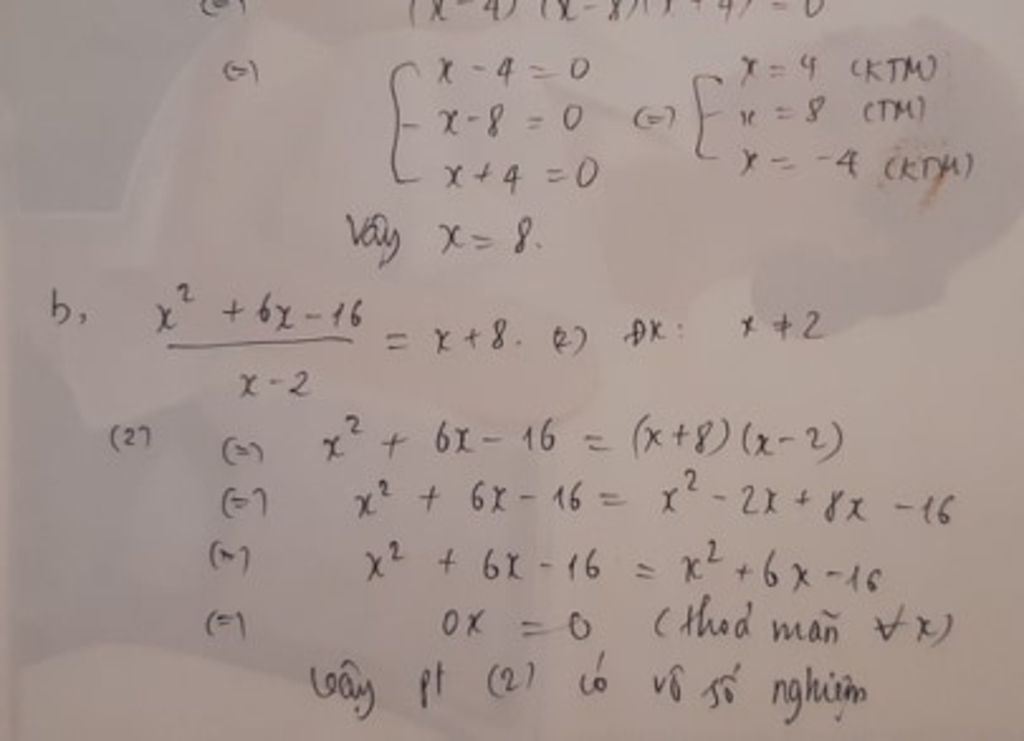 (x-4)(x-8)(x+4) = 0
(=) [ x - 4 = 0 (=) [ x = 4 (KTM)
x - 8 = 0 x = 8 (TM)
x + 4 = 0 x = -4 (KTM)
Vậy x = 8.
b, (x² + 6x - 16)/(x - 2) = x + 8. (2) ĐK: x ≠ 2
(2) (=) x² + 6x - 16 = (x+8)(x-2)
(=) x² + 6x - 16 = x² - 2x + 8x - 16
(=) x² + 6x - 16 = x² + 6x - 16
(=) 0x = 0 (thoả mãn ∀x)
Vậy pt (2) có vô số nghiệm